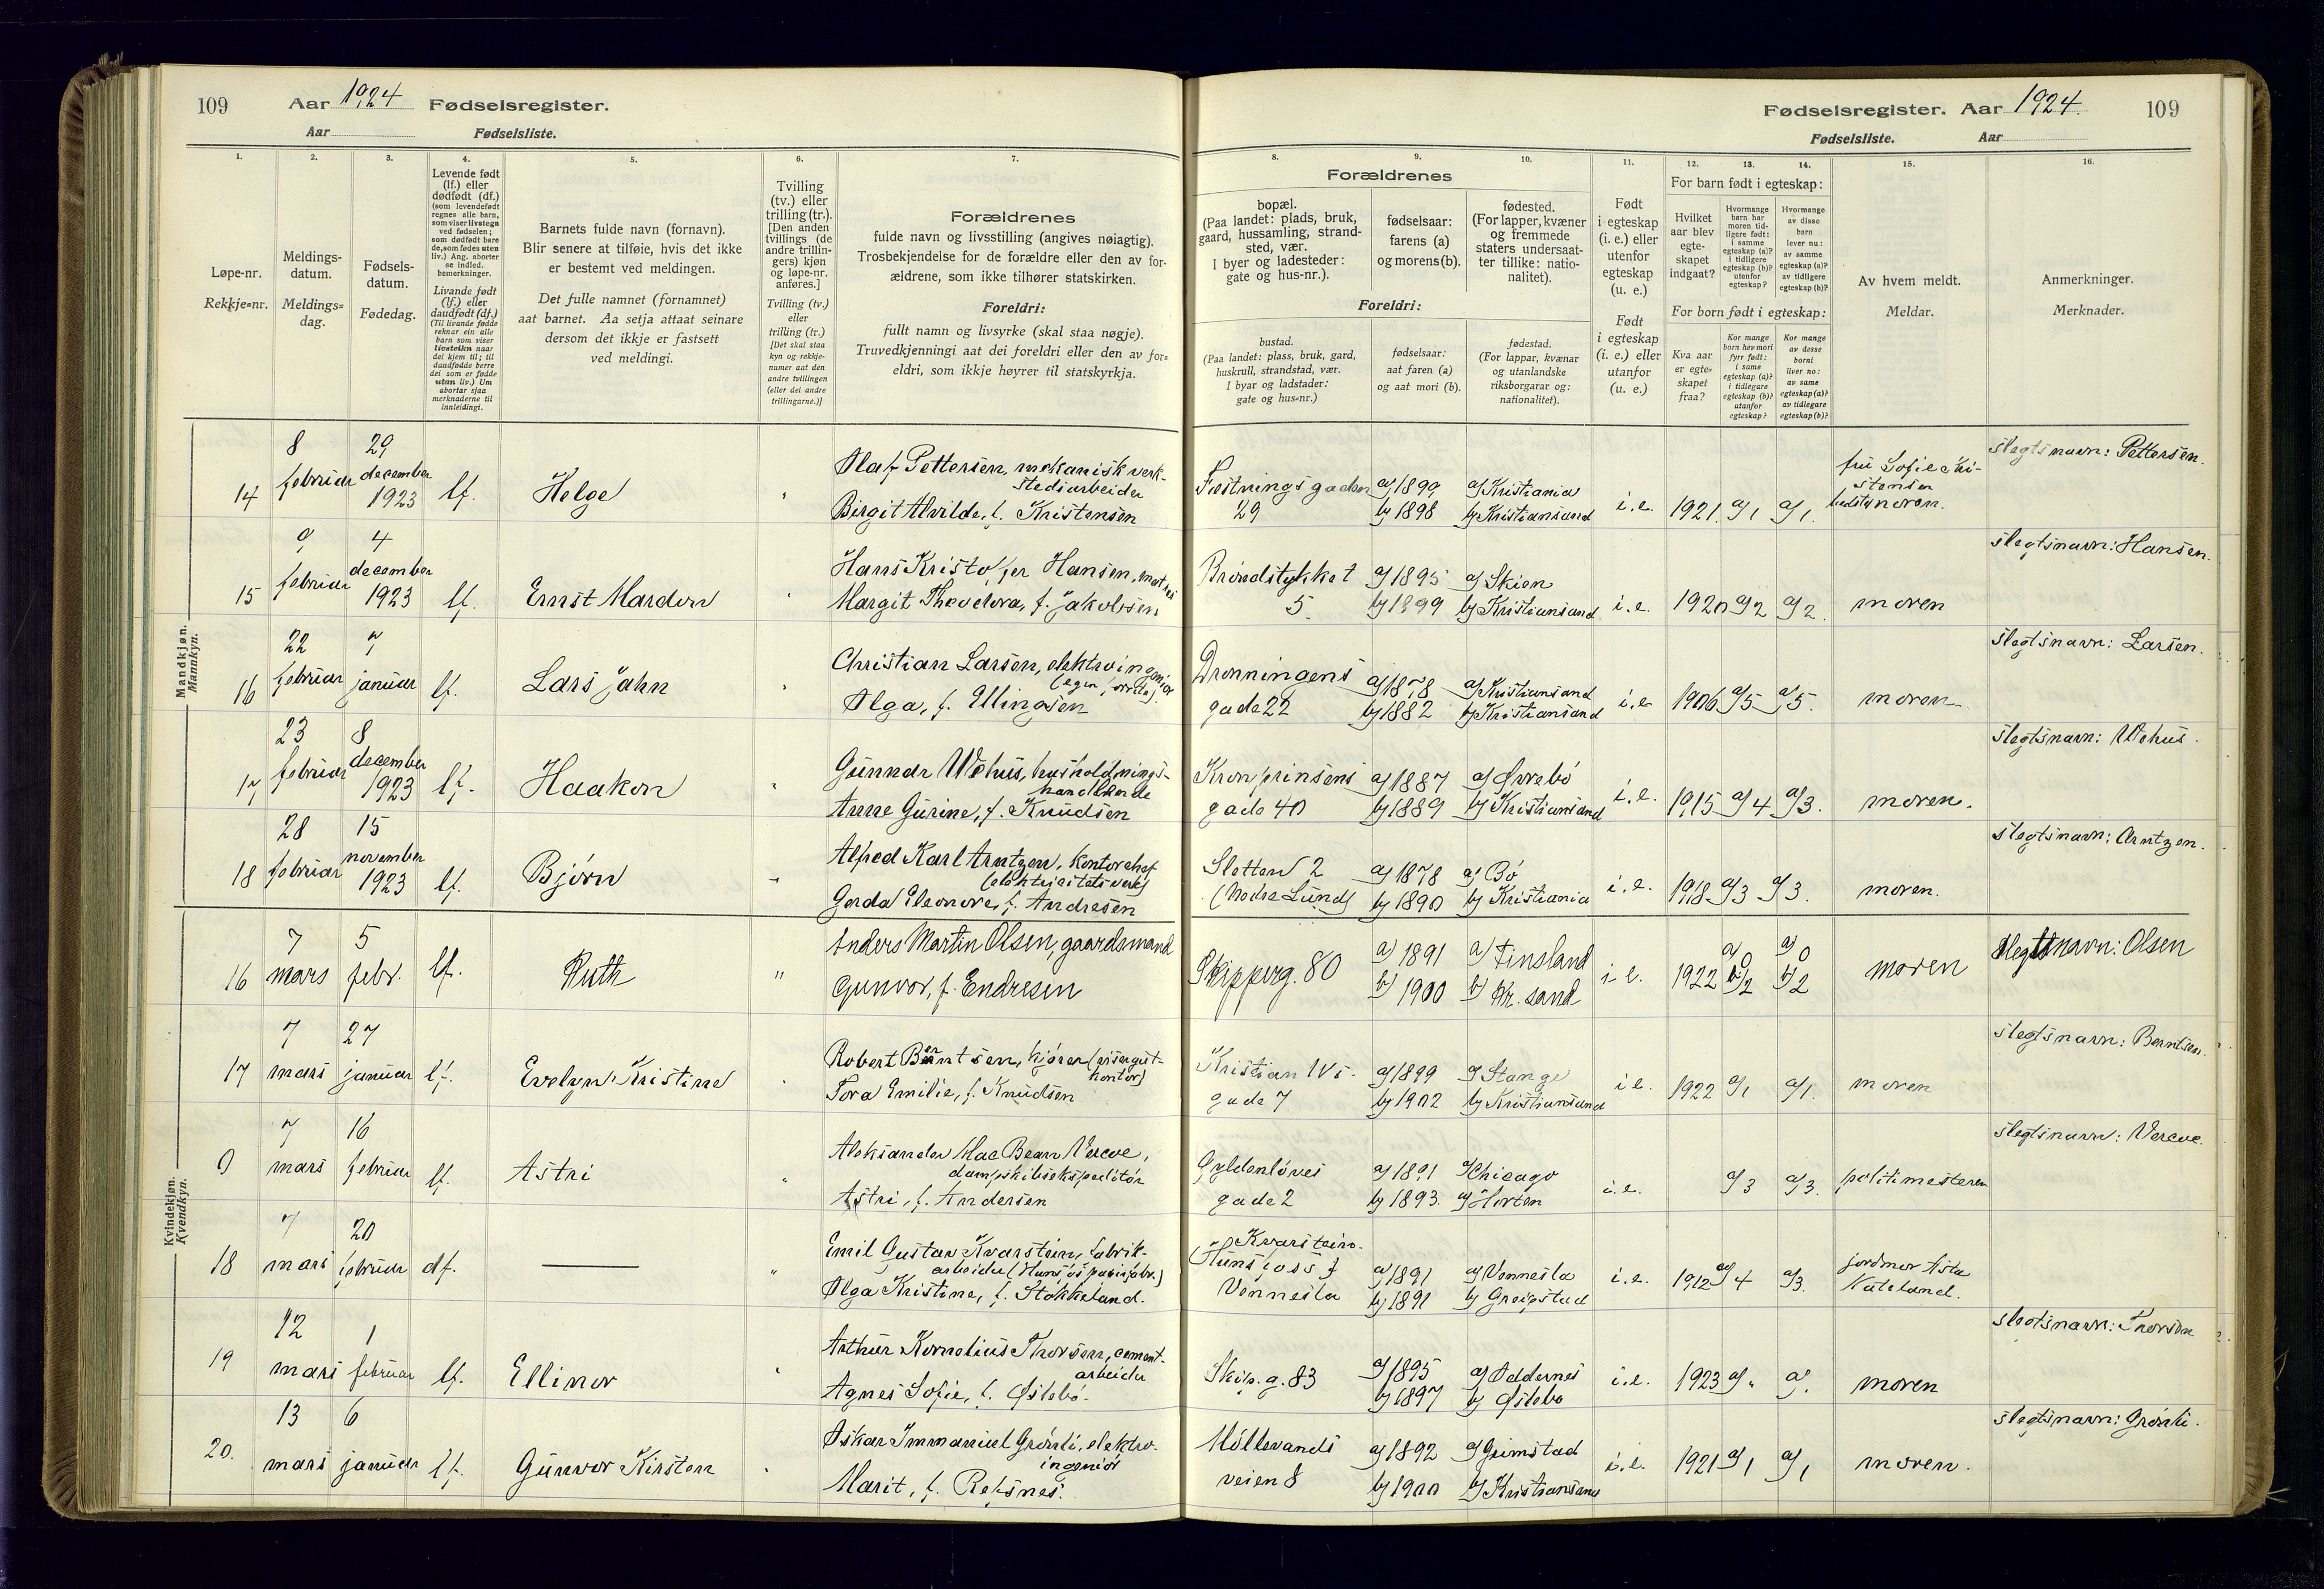 109 Aar 1924 Fødselsregister.
Aar Fødselsliste.
Fødselsregister. Aar 1924. 109
Fødselsliste. Aar
1. 2. 3. 4. 5. 6. 7.
Løpe-nr.
Rekkje=nr.
Meldings-
datum.
Meldings=
dag.
Fødsels-
datum.
Fødedag.
Levende født
(lf.) eller
dødfødt (df.)
(som levendefødt
regnes alle barn,
som viser livstegn
ved fødselen;
som dødfødt bare
de, som fødes uten
liv.) Ang. aborter
se indled.
bemerkninger.
Livande født
(lf.) eller
daudfødt (df.)
(Til livande fødde
reknar ein alle
barn som viser
livsteikn naar
dei kjem til; til
daudfødde berre
dei som er fødde
utan liv.) Um
abortar sjaa
merknaderne til
innleidingi.
Barnets fulde navn (fornavn).
Blir senere at tilføie, hvis det ikke
er bestemt ved meldingen.
Det fulle namnet (fornamnet)
aat barnet. Aa setja attaat seinare
dersom det ikkje er fastsett
ved meldingi.
Tvilling
(tv.) eller
trilling (tr.).
[Den anden
tvillings (de
andre trillin-
gers) kjøn
og løpe-nr.
anføres.]
Tvilling (tv.)
eller
trilling (tr.)
[Det skal staa
kyn og rekkje-
numer aat den
andre tvillingen
(eller dei andre
trillingarne.)]
Forældrenes
fulde navn og livsstilling (angives nøiagtig).
Trosbekjendelse for de forældre eller den av for-
ældrene, som ikke tilhører statskirken.
Foreldri:
fullt namn og livsyrke (skal staa nøgje).
Truvedkjenningi aat dei foreldri eller den av for=
eldri, som ikkje høyrer til statskyrkja.
8. 9. 10. 11. 12. 13. 14. 15. 16.
Forældrenes
bopæl.
(Paa landet: plads, bruk,
gaard, hussamling, strand-
sted, vær.
I byer og ladesteder:
gate og hus-nr.).
fødselsaar:
farens (a)
og morens (b).
fødested.
(For lapper, kvæner
og fremmede
staters undersaat-
ter tillike: natio-
nalitet).
Foreldri:
bustad.
(Paa landet: plass, bruk, gard,
huskrull, strandstad, vær.
I byar og ladstader:
gate og hus=nr.)
fødselsaar:
aat faren (a)
og aat mori (b).
fødestad.
(For lappar, kvænar
og utanlandske
riksborgarar og:
nationalitet).
Født
i egteskap
(i. e.) eller
utenfor
egteskap
(u. e.)
Født
i egteskap
(i. e.) eller
utanfor
(u. e.)
For barn født i egteskap:
Hvilket
aar blev
egte-
skapet
indgaat?
Hvormange
barn har
moren tid-
ligere født:
i samme
egteskap (a)?
i tidligere
egteskap (b)?
utenfor
egteskap?
Hvormange
av disse
barn
lever nu:
av samme
egteskap (a)?
av tidligere
egteskap (b)?
For born født i egteskap:
Kva aar
er egte=
skapet
fraa?
Kor mange
born hev mori
fyrr født:
i same
egteskap (a)?
i tidlegare
egteskap (b)?
utanfor
egteskap?
Kor mange
av desse
borni
liver no:
av same
egteskap (a)?
av tidlegare
egteskap (b)?
Av hvem meldt.
Meldar.
Anmerkninger.
Merknader.
Mandkjøn.
Mannkyn.
14 8 februar 29 december 1923 lf. Helge
Olaf Pettersen, mekanisk verk-
stedsarbeider
Birgit Alvilde, f. Kristensen
Fæstningsgaden 29 a) 1899 b) 1898 a) Kristiania b) Kristiansand i.e. 1921. a) 1 a) 1. fru Sofie Kri-
stensen
moren. slegtsnavn: Pettersen.
15 9 februar 4 december 1923 lf. Ernst Mardon
Hans Kristoffer Hansen,
Margit Theodora, f. Jakobsen
Brøndstykket 5. a) 1895 b) 1899 a) Skien b) Kristiansand i.e. 1920 a) 2 a) 2. moren slegtsnavn: Hansen.
16 22 februar 7 januar lf. Lars Jahn
Christian Larsen, elektroingeniør
Olga, f. Ellingsen
Dronningens gade 22 a) 1878 b) 1882 a) Kristiansand b) Kristiansand i.e 1906 a) 5 a) 5. moren slegtsnavn: Larsen.
17 23 februar 8 december 1923 lf. Haakon
Gunnar Wehus, husholdnings-
handlende
Anne Gurine, f. Knudsen
Kronprinsens gade 40 a) 1887 b) 1889 a) Øvrebø b) Kristiansand i.e. 1915 a) 4 a) 3. moren. slegtsnavn: Wehus.
18 28 februar 15 november 1923 lf. Bjørn
Alfred Karl Arntzen, kontorchef
(elektricitetsverk)
Gerda Eleonore, f. Andresen
Sletten 2 (Nedre Lund) a) 1878 b) 1890 a) Bø b) Kristiania i.e. 1918 a) 3 a) 3. moren. slegtsnavn: Arntzen.
Kvindekjøn.
Kvendkyn.
16 7 mars 5 febr. lf. Ruth "
Anders Martin Olsen, gaardsmand
Gunvor, f. Endresen
Skipperg. 80 a) 1891 b) 1900 a) Finsland b) Kr.sand i e. 1922 a) 0 b) 2 a) 0 b) 2 moren slegtsnavn: Olsen
17 7 mars 27 januar lf. Evelyn Kristine
Robert Berntsen, kjører (visergut-
kontor)
Tora Emilie, f. Knudsen
Kristian IVs gade 7 a) 1899 b) 1902 a) Stange b) Kristiansand i e. 1922 a) 1 a) 1. moren slegtsnavn: Berntsen.
9 7 mars 16 februar lf. Astri
Aleksander Mac Bean Vereve,
dampskibsekspeditør
Astri, f. Andersen
Gyldenløves gade 2 a) 1891 b) 1893. a) Chicago b) Horten i.e. a) 3 a) 3. politimesteren slegtsnavn: Vereve.
18 7 mars 20 februar df. ———
Emil Gustav Kvarstein, fabrik-
arbeider (Hunsfos papirfabr.)
Olga Kristine, f. Stokkeland.
Kvarstein.
(Hunsfoss)
Vennesla a) 1891 b) 1891 a) Vennesla b) Greipstad i.e. 1912 a) 4 a) 3. jordmor Asta
Nateland.
19 12 mars 1 februar lf. Ellinor
Arthur Kornelius Thorsen, cement-
arbeider
Agnes Sofie, f. Østebø.
Skip.g. 83 a) 1895 b) 1897 a) Oddernes b) Østebø i.e. 1923 a) " a) moren slegtsnavn: Thorsen
20. 13 mars 6 januar lf. Gunvor Kirsten
Oskar Immanuel Grønli, elektro-
ingeniør
Marit, f. Reksnes.
Møllevands veien 8 a) 1892 b) 1900 a) Grimstad b) Kristiansand i.e. 1921 a) 1 a) 1 moren. slegtsnavn: Grønli.